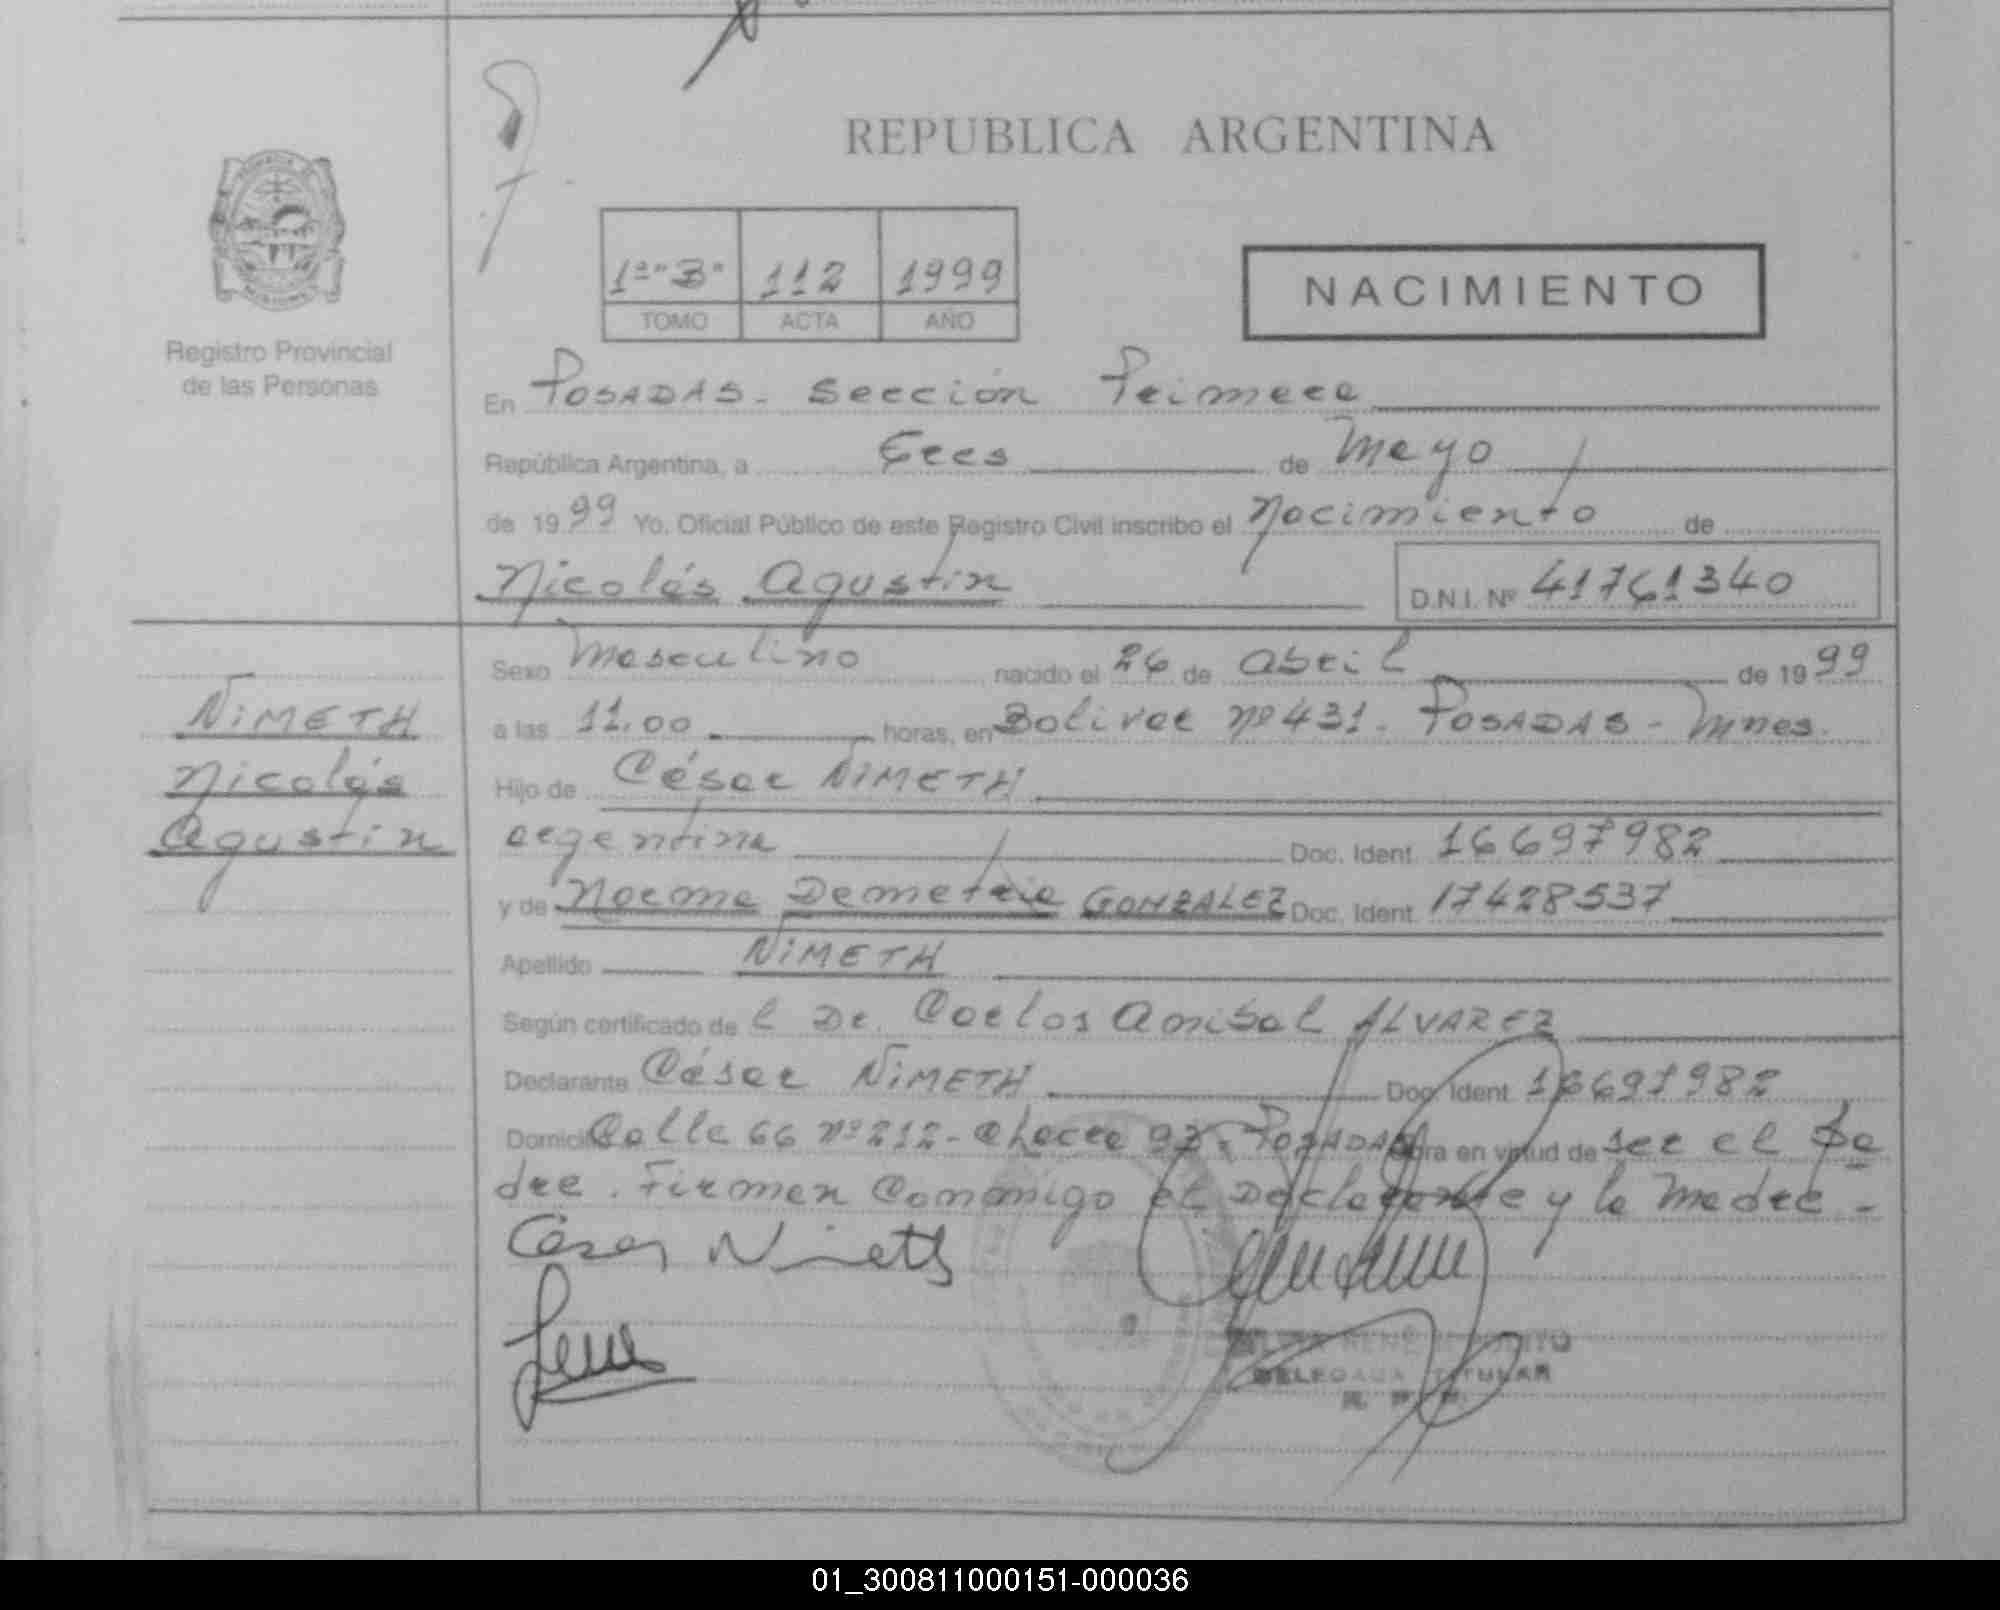 REPUBLICA ARGENTINA
1º "B" 112 1999
TOMO ACTA AÑO
NACIMIENTO
Registro Provincial
de las Personas
En POSADAS - Sección Primera
República Argentina, a tres de Mayo
de 1999 Yo, Oficial Público de este Registro Civil inscribo el Nacimiento de
Nicolás Agustín D.N.I. Nº 41761340
Sexo Masculino nacido el 26 de Abril de 1999
a las 11.00 horas, en Bolivar Nº 431 - POSADAS - Mnes.
Hijo de César NIMETH
argentina Doc. Ident. 16697982
y de Norma Demetria GONZALEZ Doc. Ident. 17428537
Apellido NIMETH
Según certificado del Dr. Carlos Anibal ALVAREZ
Declarante César NIMETH Doc. Ident. 16697982
Domicilio Calle 66 Nº 212 - Chacra - POSADAS obra en virtud de ser el Pa
dre. Firman Conmigo el Declarante y la Madre -
NIMETH
Nicolás
Agustín
Cesar Nimeth
RENE
DELEGADA TITULAR
01_300811000151-000036